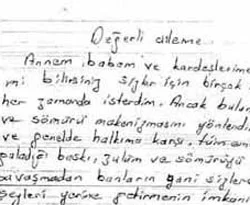 Değerli aileme.
Annem, babam ve kardeşlerime
mi bilirsiniz sizler için birçok
her zamanda isterdim. Ancak bulun
ve sömürü mekanizmasını yönlendi
ve genelde halkıma karşı, tüm
baskı, zulüm ve sömürüyü
savaşmadan bunların yani sizlere
şeyleri yerine getirmenin imkan